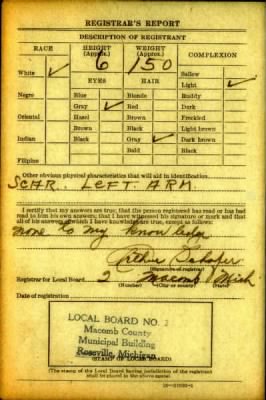 REGISTRAR'S REPORT
DESCRIPTION OF REGISTRANT
RACE HEIGHT (Approx.) WEIGHT (Approx.) COMPLEXION
White ✓ 6 150 Sallow
EYES HAIR Light ✓
Negro Blue Blonde Ruddy
Gray ✓ Red Dark
Oriental Hazel Brown Freckled
Brown Black Light brown
Indian Black Gray ✓ Dark brown
Bald Black
Filipino
Other obvious physical characteristics that will aid in identification
SCAR. LEFT ARM
I certify that my answers are true; that the person registered has read or has had
read to him his own answers; that I have witnessed his signature or mark and that
all of his answers of which I have knowledge are true, except as follows:
none to my knowledge
Arthur Schafer
(Signature of registrar)
Registrar for Local Board 2 Macomb Mich
(Number) (City or county) (State)
Date of registration
LOCAL BOARD NO. 2
Macomb County
Municipal Building
Roseville, Michigan
(STAMP OF LOCAL BOARD)
(The stamp of the Local Board having jurisdiction of the registrant
shall be placed in the above space)